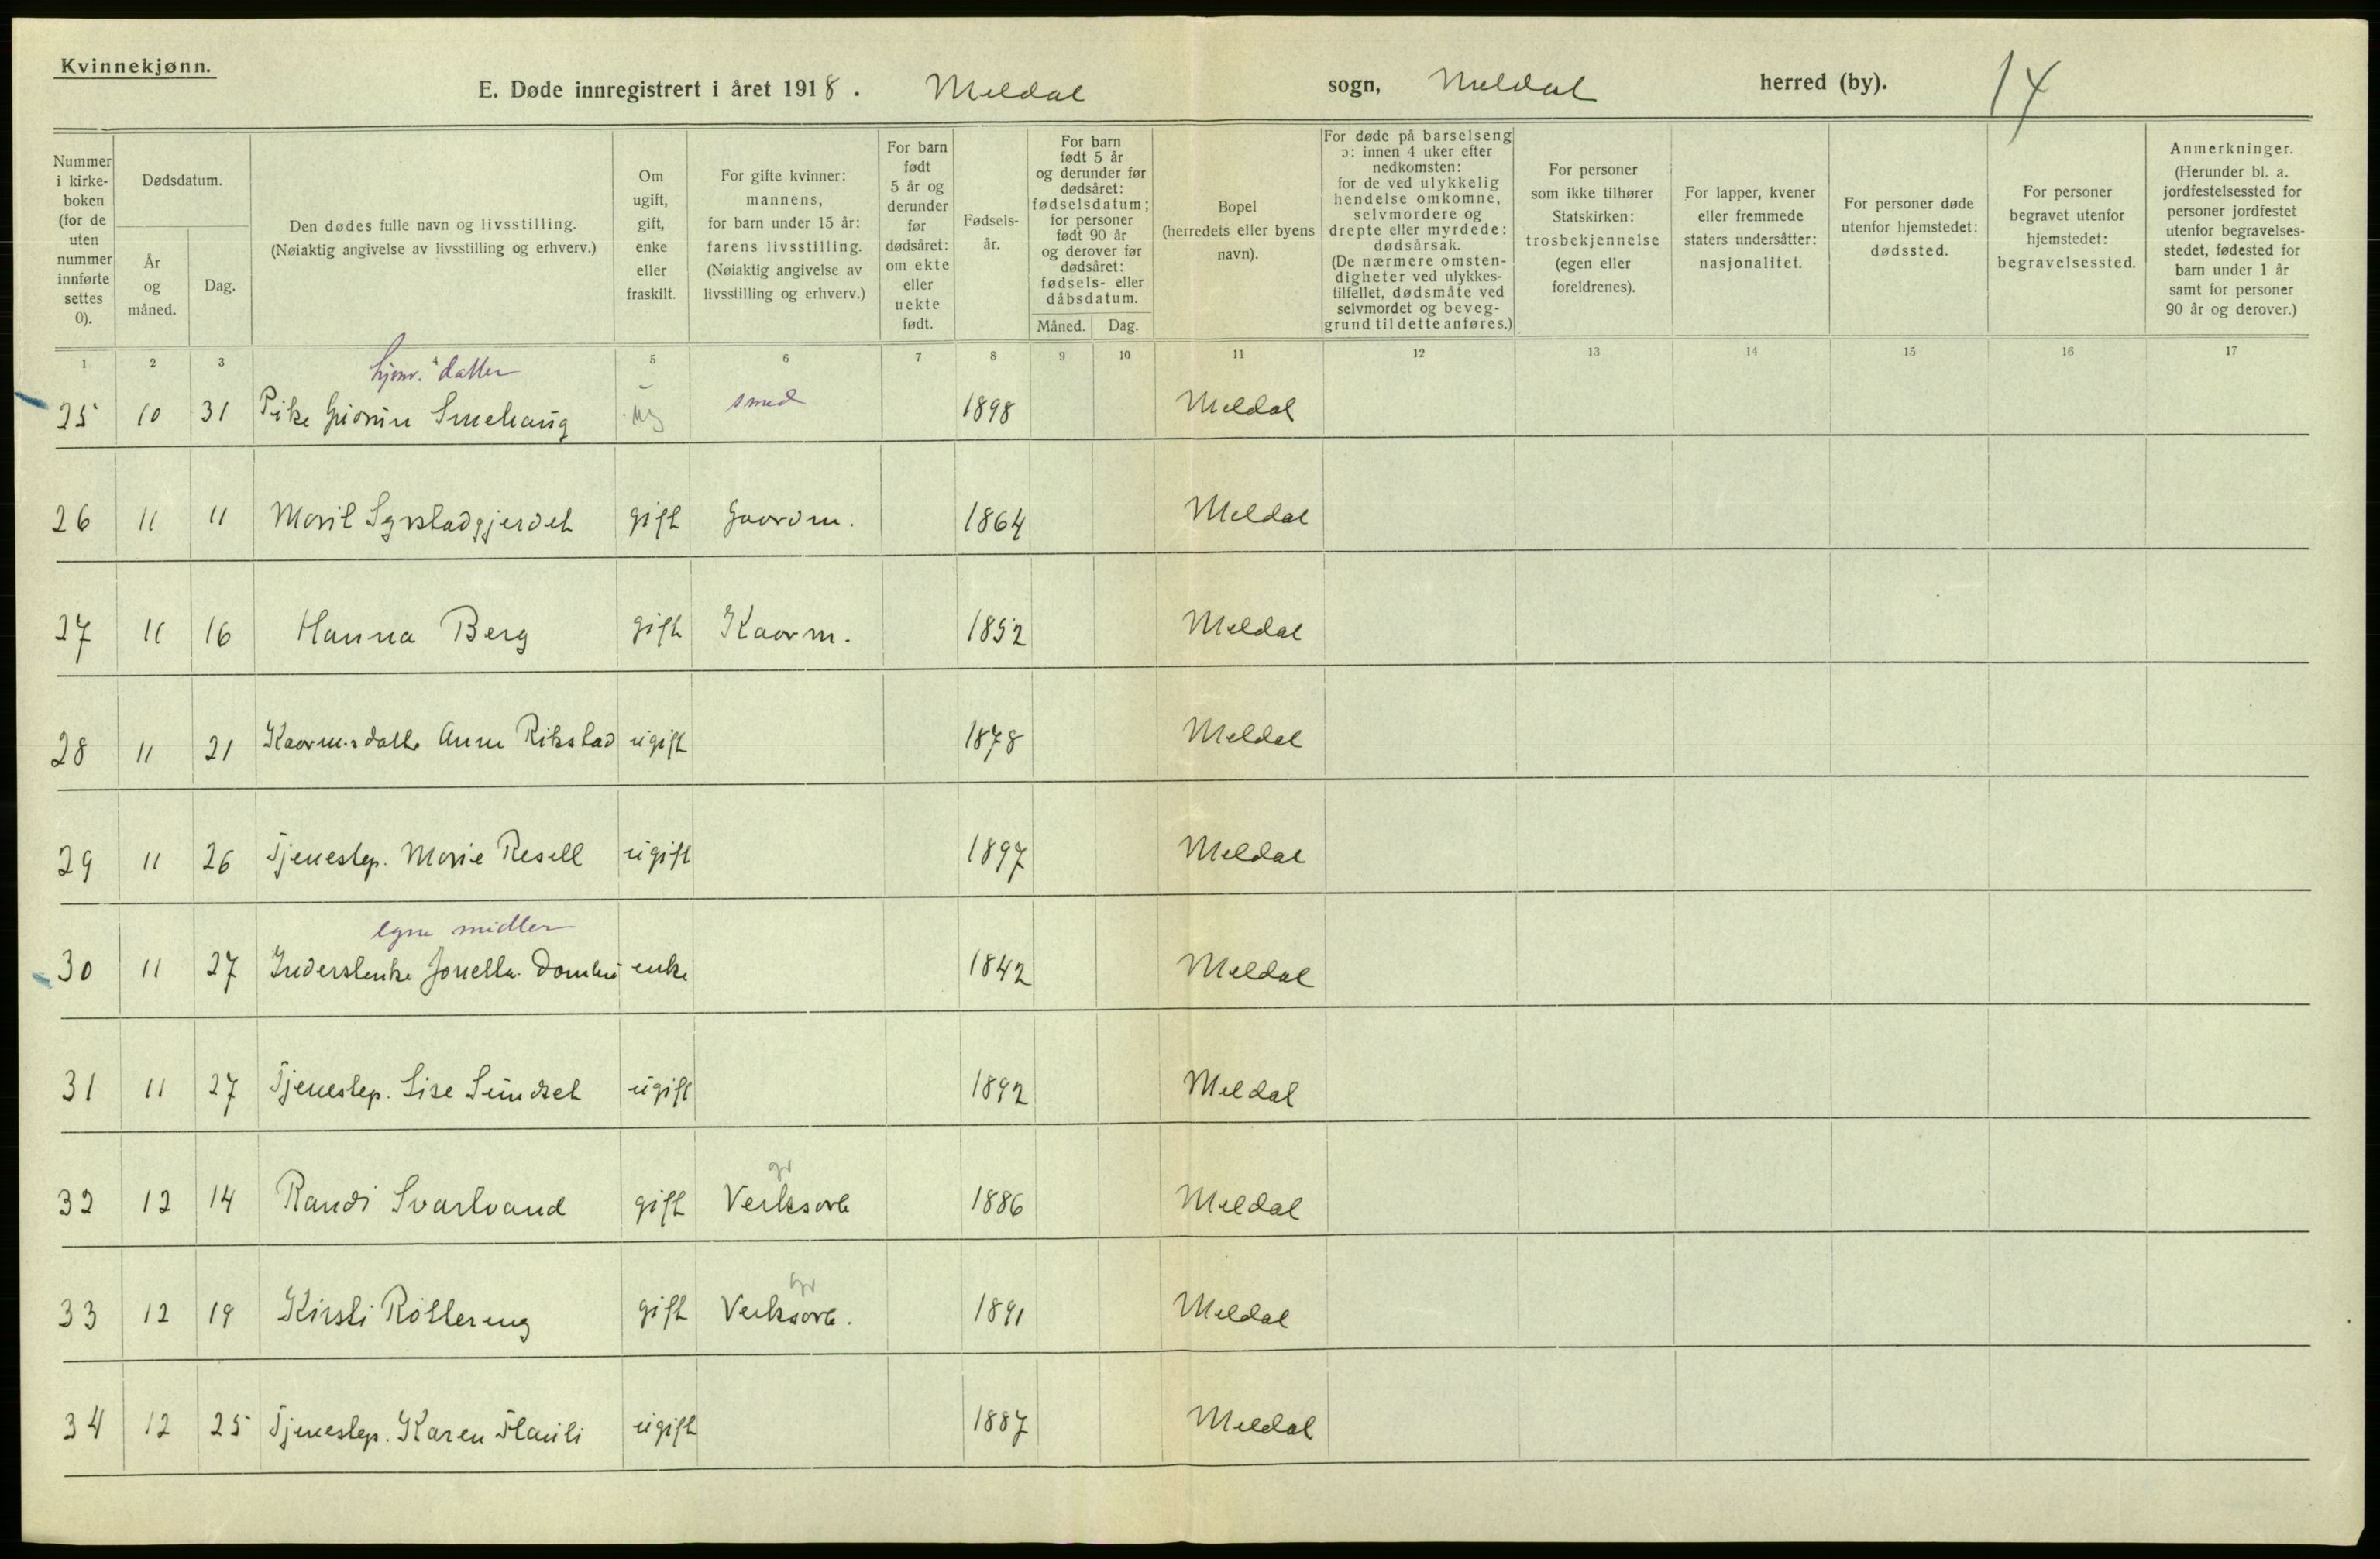 Kvinnekjønn.
E. Døde innregistrert i året 1918. Meldal sogn, Meldal herred (by). 14
Nummer i kirke- boken (for de uten nummer innførte settes 0).
Dødsdatum.
År og måned.
Dag.
Den dødes fulle navn og livsstilling.
(Nøiaktig angivelse av livsstilling og erhverv.)
Om ugift, gift, enke eller fraskilt.
For gifte kvinner: mannens, for barn under 15 år: farens livsstilling. (Nøiaktig angivelse av livsstilling og erhverv.)
For barn født 5 år og derunder før dødsåret: om ekte eller uekte født.
Fødsels- år.
For barn født 5 år og derunder før dødsåret: fødselsdatum; for personer født 90 år og derover før dødsåret: fødsels- eller dåbsdatum.
Måned.
Dag.
Bopel (herredets eller byens navn).
For døde på barselseng ɔ: innen 4 uker efter nedkomsten: for de ved ulykkelig hendelse omkomne, selvmordere og drepte eller myrdede: dødsårsak. (De nærmere omsten- digheter ved ulykkes- tilfellet, dødsmåte ved selvmordet og beveg- grund til dette anføres.)
For personer som ikke tilhører Statskirken: trosbekjennelse (egen eller foreldrenes).
For lapper, kvener eller fremmede staters undersåtter: nasjonalitet.
For personer døde utenfor hjemstedet: dødssted.
For personer begravet utenfor hjemstedet: begravelsessted.
Anmerkninger. (Herunder bl. a. jordfestelsessted for personer jordfestet utenfor begravelses- stedet, fødested for barn under 1 år samt for personer 90 år og derover.)
1 2 3 4 5 6 7 8 9 10 11 12 13 14 15 16 17
hjemv. datter
25 10 31 Pike Smehaug ug smed 1898 Meldal
26 11 11 Marit Syrstadgjerdet gift Gaardm. 1864 Meldal
27 11 16 Hanna Berg gift Kaarm. 1852 Meldal
28 11 21 Kaarm.s datt. Anne Rikstad ugift 1878 Meldal
29 11 26 Tjenestep. Marie Resell ugift 1897 Meldal
egne midler
30 11 27 Inderstenke enke 1842 Meldal
31 11 27 Tjenestep. Lise Sundset ugift 1892 Meldal
gr
32 12 14 Randi Svartvand gift Verksarb 1886 Meldal
gr
33 12 19 Kirsti Røttereng gift Verksarb. 1891 Meldal
34 12 25 Tjenestep. Karen ugift 1887 Meldal